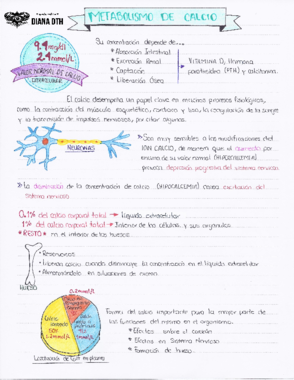 DIANA DTH
METABOLISMO DE CALCIO
9.4 mg/dl
2.4 mmol/L
VALOR NORMAL DE CALCIO
Su concentración depende de...
* Absorción Intestinal
* Excreción Renal
* Captación
* Liberación Ósea
VITAMINA D, Hormona
paratiroidea (PTH) y calcitonina.
El calcio desempeña un papel clave en muchos procesos fisiológicos,
como la contracción del músculo esquelético, cardiaco y liso, la coagulación de la sangre
y la transmisión de impulsos nerviosos, por citar algunos.
NEURONAS
Son muy sensibles a las modificaciones del
ION CALCIO, de manera que el aumento por
encima de su valor normal (HIPERCALCEMIA)
provoca depresión progresiva del sistema nervioso
La disminución de la concentración de calcio (HIPOCALCEMIA) causa excitación del
sistema nervioso
0.1% del calcio corporal total → Líquido extracelular
1% del calcio corporal total → Interior de las células y sus organulos
*RESTO* en el interior de los huesos
HUESO
• Reservorios
• Liberando calcio cuando disminuye su concentración en el líquido extracelular
• Almacenándolo en situaciones de exceso
Forma del calcio importante para la mayor parte de
las funciones del mismo en el organismo.
* Efectos sobre el corazón
* Efectos en Sistema Nervioso
* Formación de hueso